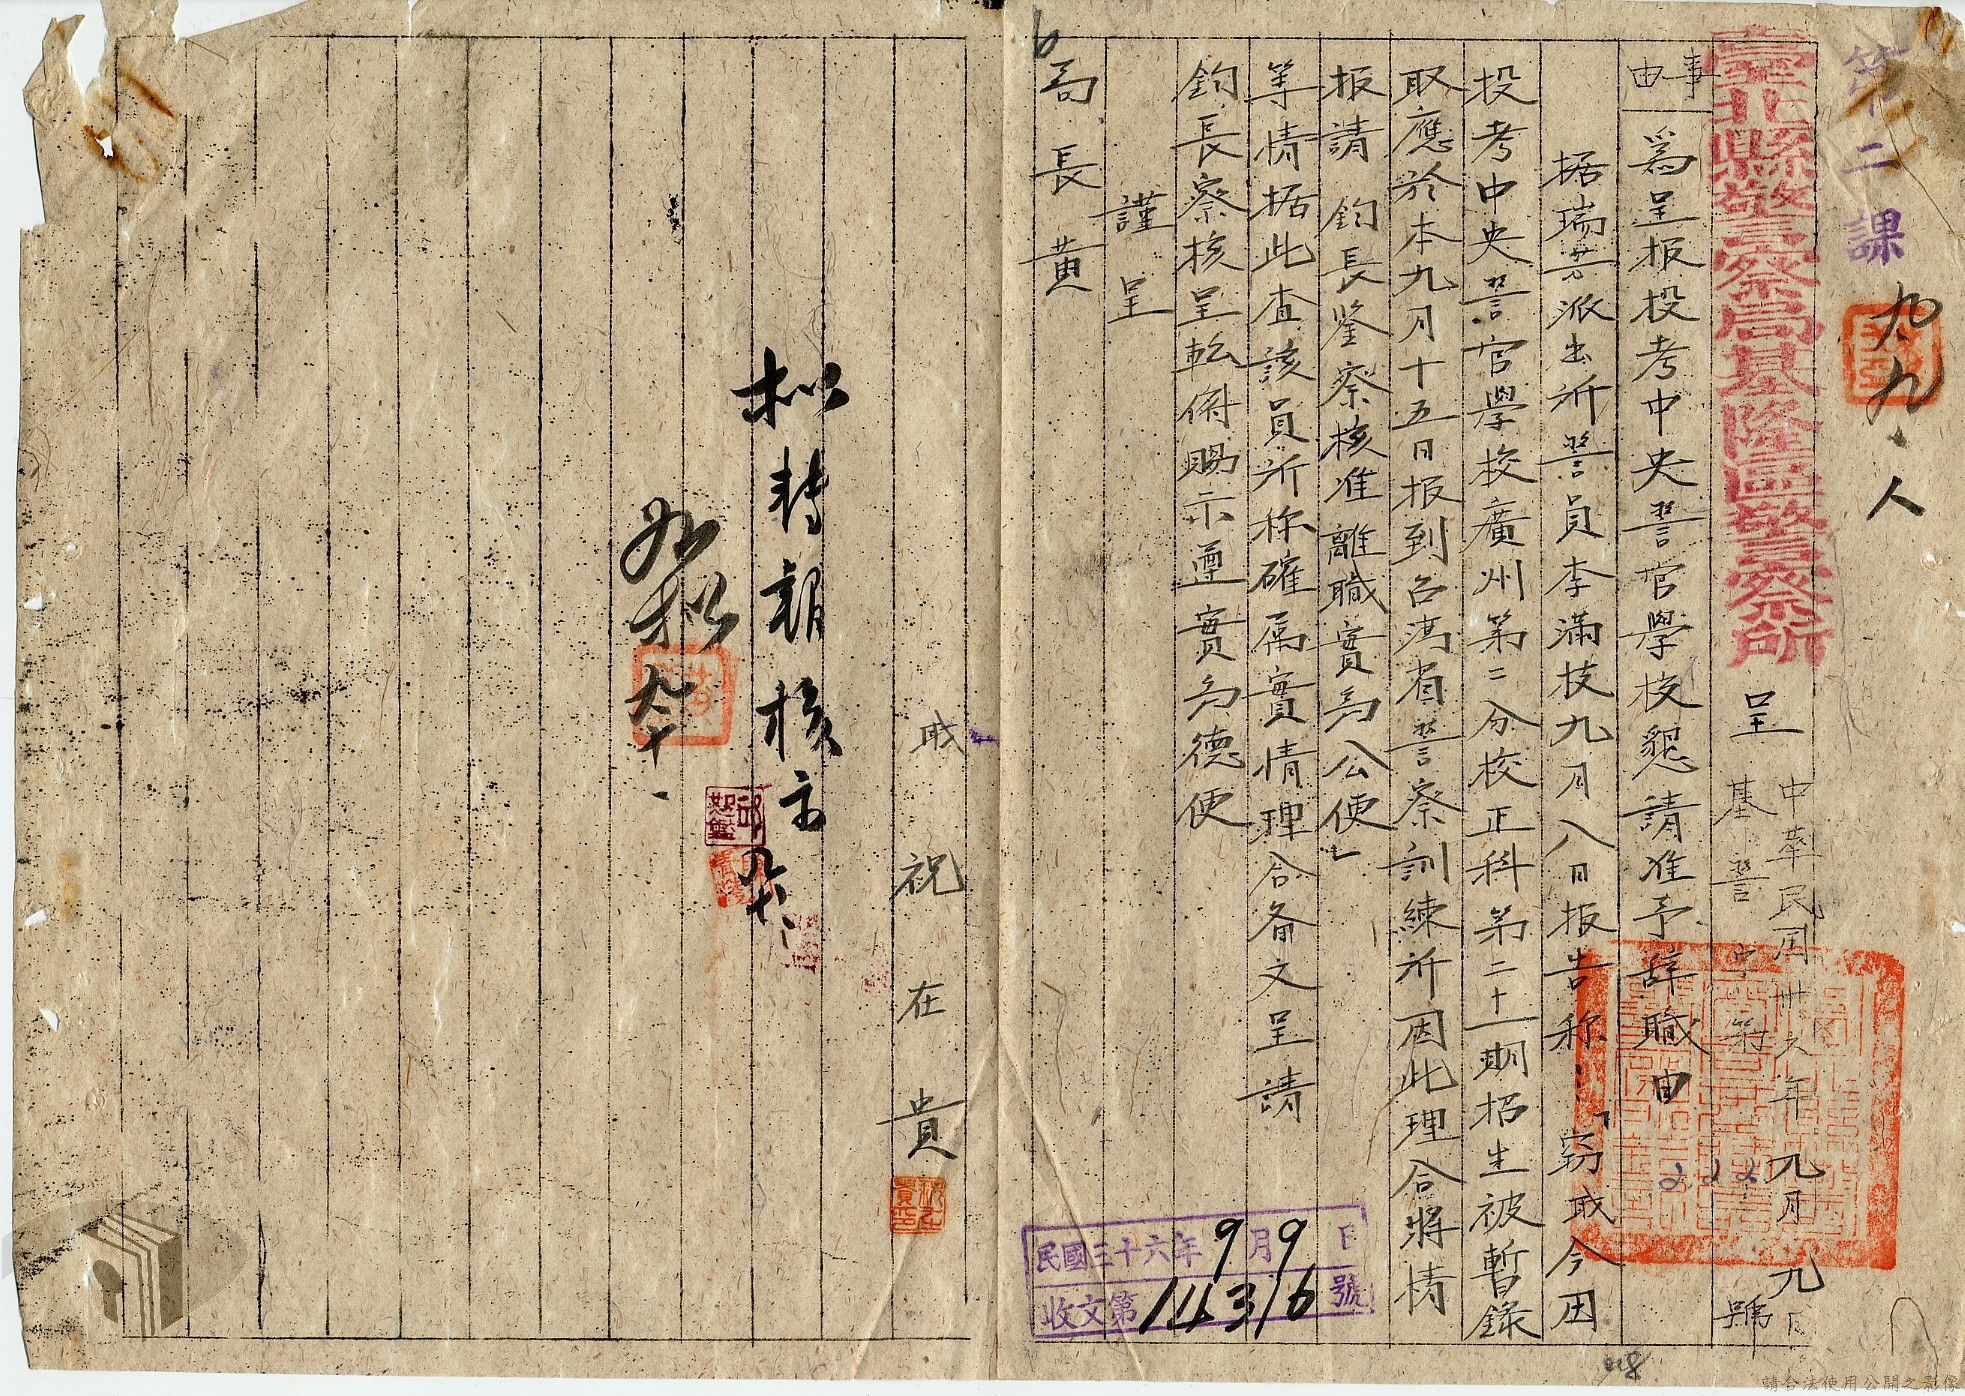 第二課
九、九、人
臺北縣警察局基隆區警察所 呈
中華民國卅六年九月九日
基警 字第 222 號
事由 為呈报投考中央警官學校懇請准予辞職由
据瑞芳派出所警員李滿枝九月八日报告称：「窃職今因
投考中央警官學校廣州第二分校正科第二十一期招生被暫錄
取應於本九月十五日报到台湾省警察訓練所因此理合將情
报請 鈞長鉴察核准離職實為公便」
等情据此查該員所称確屬實情理合备文呈請
鈞長察核呈転俯賜示遵實為德便
謹呈
局長黄
民國三十六年9月9日
收文第14316號
職 祝在貴
拟轉報核示
邱恕鑑
如拟
請合法使用公開之影像